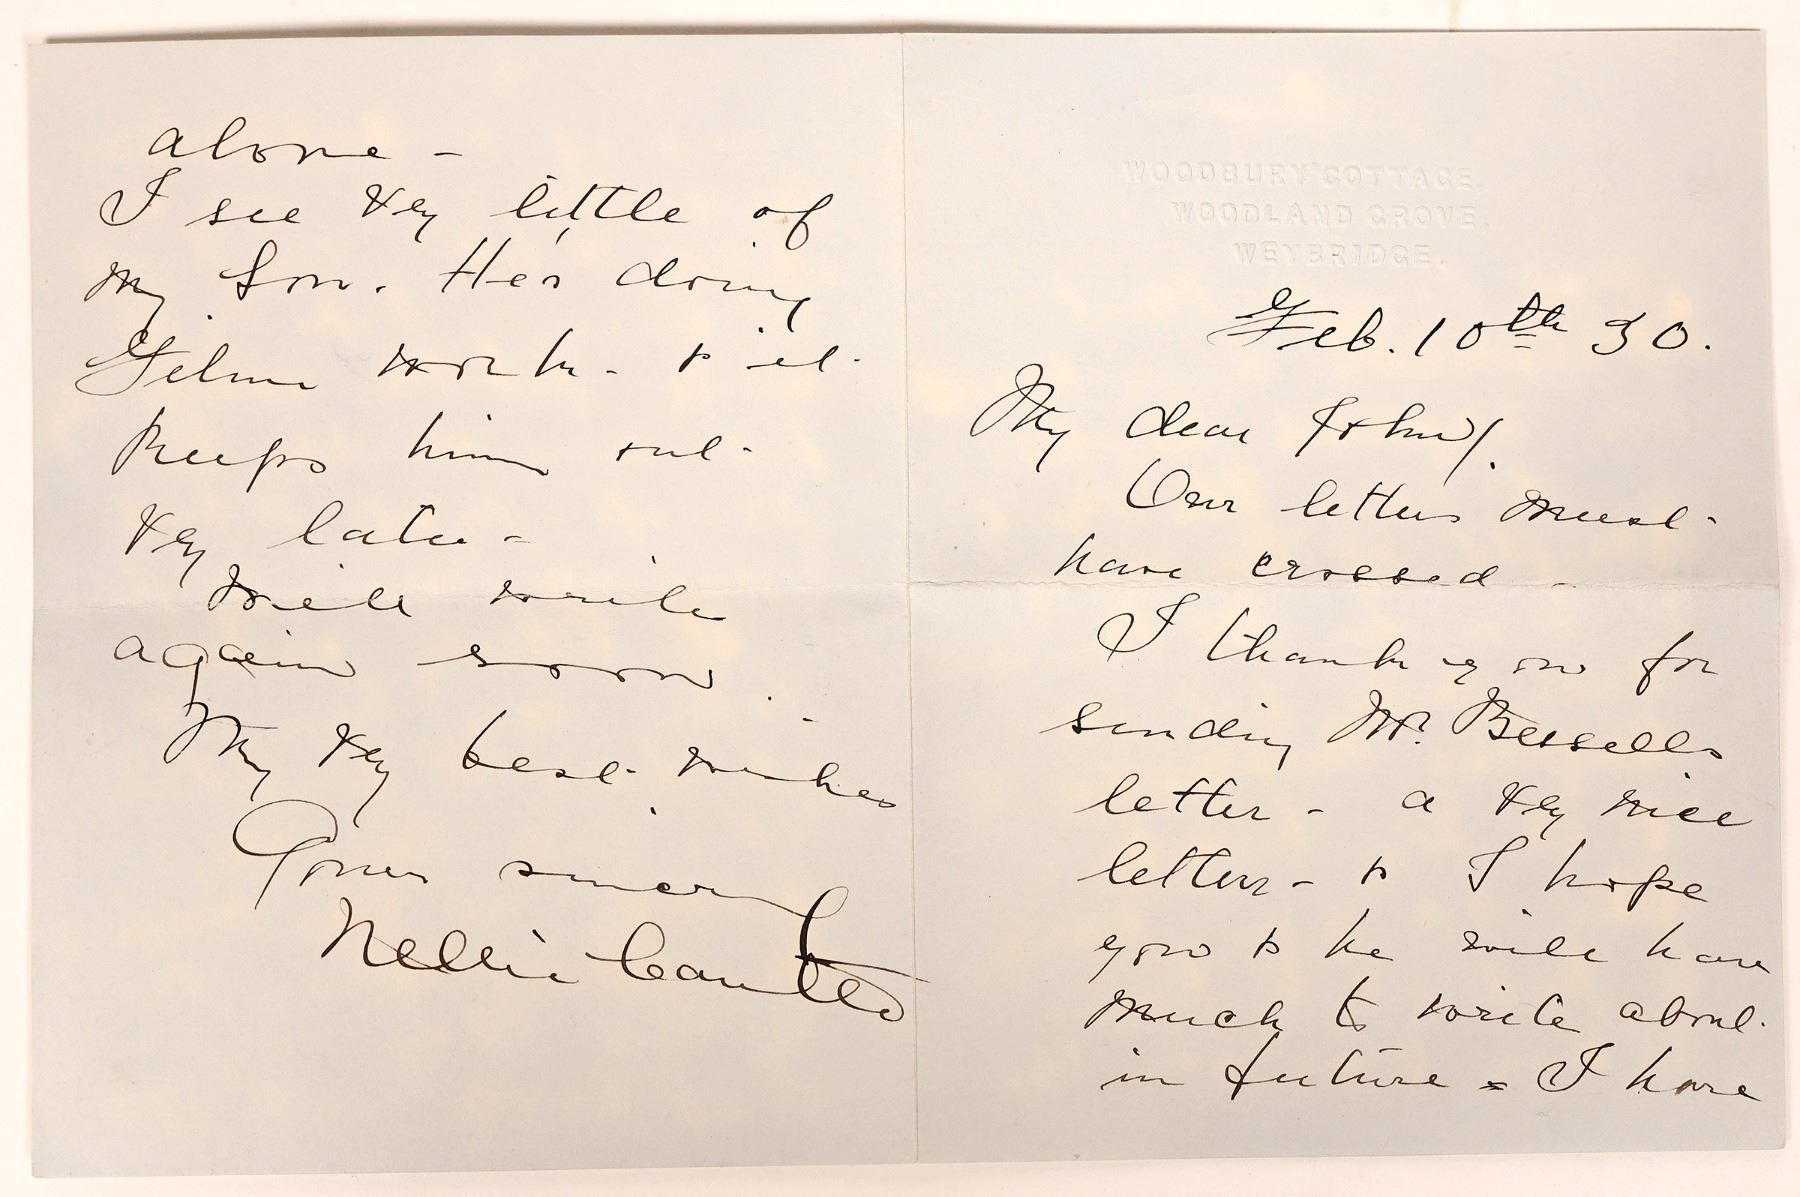 WOODBURY COTTAGE,
WOODLAND GROVE,
WEYBRIDGE.
Feb. 10th 30.
My dear John/.
Our letters must
have crossed -
I thank you for
sending Mr.
letter - a very nice
letter - & I hope
you & he will have
much to write about
in future - I have
alone -
I see very little of
my Son. He's doing
Film work - & it
keeps him out
very late -
Will write
again soon.
My very best wishes
Yours sincerely
Nellie